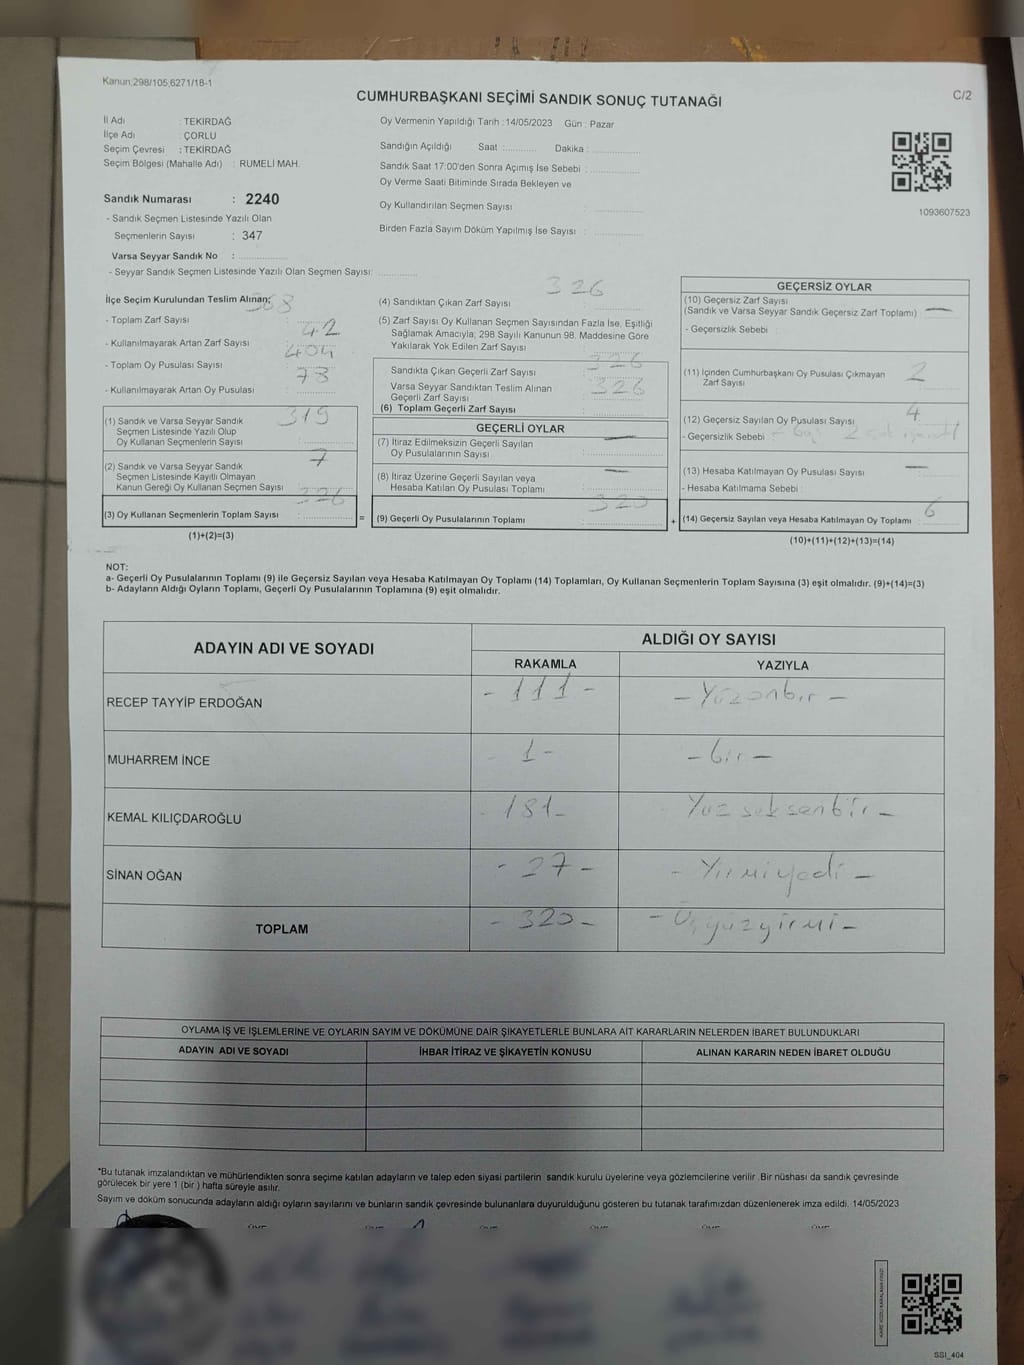 Kanun;298/105,6271/18-1
CUMHURBAŞKANI SEÇİMİ SANDIK SONUÇ TUTANAĞI
C/2
İl Adı : TEKİRDAĞ
İlçe Adı : ÇORLU
Seçim Çevresi : TEKİRDAĞ
Seçim Bölgesi (Mahalle Adı) : RUMELİ MAH.
Oy Vermenin Yapıldığı Tarih :14/05/2023 Gün : Pazar
Sandığın Açıldığı Saat :........... Dakika :...............
Sandık Saat 17:00'den Sonra Açımış İse Sebebi :...............
Oy Verme Saati Bitiminde Sırada Bekleyen ve
Oy Kullandırılan Seçmen Sayısı :...............
Birden Fazla Sayım Döküm Yapılmış İse Sayısı :...............
1093607523
Sandık Numarası : 2240
- Sandık Seçmen Listesinde Yazılı Olan
Seçmenlerin Sayısı : 347
Varsa Seyyar Sandık No :...............
- Seyyar Sandık Seçmen Listesinde Yazılı Olan Seçmen Sayısı:.............
İlçe Seçim Kurulundan Teslim Alınan;
368
- Toplam Zarf Sayısı
42
- Kullanılmayarak Artan Zarf Sayısı
404
- Toplam Oy Pusulası Sayısı
78
- Kullanılmayarak Artan Oy Pusulası
319
(1) Sandık ve Varsa Seyyar Sandık
Seçmen Listesinde Yazılı Olup
Oy Kullanan Seçmenlerin Sayısı
7
(2) Sandık ve Varsa Seyyar Sandık
Seçmen Listesinde Kayıtlı Olmayan
Kanun Gereği Oy Kullanan Seçmen Sayısı
326
(3) Oy Kullanan Seçmenlerin Toplam Sayısı =
(1)+(2)=(3)
326
(4) Sandıktan Çıkan Zarf Sayısı
(5) Zarf Sayısı Oy Kullanan Seçmen Sayısından Fazla İse, Eşitliği
Sağlamak Amacıyla; 298 Sayılı Kanunun 98. Maddesine Göre
Yakılarak Yok Edilen Zarf Sayısı
326
Sandıkta Çıkan Geçerli Zarf Sayısı
326
Varsa Seyyar Sandıktan Teslim Alınan
Geçerli Zarf Sayısı
(6) Toplam Geçerli Zarf Sayısı
GEÇERLİ OYLAR
(7) İtiraz Edilmeksizin Geçerli Sayılan —
Oy Pusulalarının Sayısı
(8) İtiraz Üzerine Geçerli Sayılan veya —
Hesaba Katılan Oy Pusulası Toplamı
320
(9) Geçerli Oy Pusulalarının Toplamı +
GEÇERSİZ OYLAR
(10) Geçersiz Zarf Sayısı
(Sandık ve Varsa Seyyar Sandık Geçersiz Zarf Toplamı) —
- Geçersizlik Sebebi :
(11) İçinden Cumhurbaşkanı Oy Pusulası Çıkmayan 2
Zarf Sayısı
(12) Geçersiz Sayılan Oy Pusulası Sayısı 4
- Geçersizlik Sebebi : 2
(13) Hesaba Katılmayan Oy Pusulası Sayısı —
- Hesaba Katılmama Sebebi :
6
(14) Geçersiz Sayılan veya Hesaba Katılmayan Oy Toplamı
(10)+(11)+(12)+(13)=(14)
NOT:
a- Geçerli Oy Pusulalarının Toplamı (9) ile Geçersiz Sayılan veya Hesaba Katılmayan Oy Toplamı (14) Toplamları, Oy Kullanan Seçmenlerin Toplam Sayısına (3) eşit olmalıdır. (9)+(14)=(3)
b- Adayların Aldığı Oyların Toplamı, Geçerli Oy Pusulalarının Toplamına (9) eşit olmalıdır.
ADAYIN ADI VE SOYADI
ALDIĞI OY SAYISI
RAKAMLA YAZIYLA
RECEP TAYYİP ERDOĞAN - 111 - - Yüzonbir -
MUHARREM İNCE - 1 - - bir -
KEMAL KILIÇDAROĞLU - 181 - - Yüzseksenbir -
SİNAN OĞAN - 27 - - Yirmiyedi -
TOPLAM - 320 - - Üçyüzyirmi -
OYLAMA İŞ VE İŞLEMLERİNE VE OYLARIN SAYIM VE DÖKÜMÜNE DAİR ŞİKAYETLERLE BUNLARA AİT KARARLARIN NELERDEN İBARET BULUNDUKLARI
ADAYIN ADI VE SOYADI İHBAR İTİRAZ VE ŞİKAYETİN KONUSU ALINAN KARARIN NEDEN İBARET OLDUĞU
*Bu tutanak imzalandıktan ve mühürlendikten sonra seçime katılan adayların ve talep eden siyasi partilerin sandık kurulu üyelerine veya gözlemcilerine verilir. Bir nüshası da sandık çevresinde
görülecek bir yere 1 (bir ) hafta süreyle asılır.
Sayım ve döküm sonucunda adayların aldığı oyların sayılarını ve bunların sandık çevresinde bulunanlara duyurulduğunu gösteren bu tutanak tarafımızdan düzenlenerek imza edildi. 14/05/2023
SSI_404